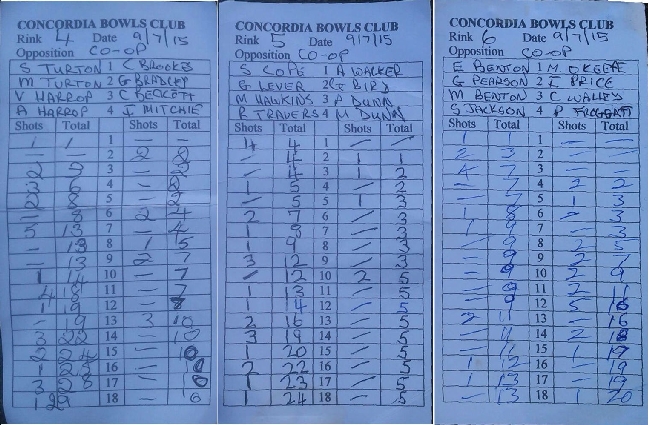 CONCORDIA BOWLS CLUB
Rink 4 Date 9/7/15
Opposition CO-OP
S TURTON 1 C BROOKES
M TURTON 2 G BRADLEY
V HARROP 3 C BECKETT
A HARROP 4 J. MITCHIE
Shots Total Shots Total
1 1 1 — —
— 2 2 2
2 3 3 — 2
3 6 4 — 2
2 8 5 — 2
— 8 6 2 4
5 13 7 — 4
— 13 8 1 5
— 13 9 2 7
1 14 10 — 7
4 18 11 — 7
1 19 12 —
— 19 13 3 10
3 22 14 — 10
2 24 15 — 10
1 25 16 —
3 28 17 —
1 29 18 —
CONCORDIA BOWLS CLUB
Rink 5 Date 9/7/15
Opposition CO-OP
S COPE 1 A WALKER
G LEVER 2 G BIRD
M HAWKINS 3 P DUNN
R TRAVERS 4 M DUNN
Shots Total Shots Total
4 4 1 — —
— 4 2 1 1
— 4 3 1 2
1 5 4 — 2
— 5 5 1 3
2 7 6 — 3
1 8 7 — 3
1 9 8 — 3
3 12 9 — 3
— 12 10 2 5
1 13 11 — 5
1 14 12 — 5
2 16 13 — 5
3 19 14 — 5
1 20 15 — 5
2 22 16 — 5
1 23 17 — 5
1 24 18 — 5
CONCORDIA BOWLS CLUB
Rink 6 Date 9/7/15
Opposition CO-OP
E BENTON 1 M OKEEFE
G PEARSON 2 I PRICE
M BENTON 3 C WALLEY
S JACKSON 4 P FROGGATT
Shots Total Shots Total
1 1 — —
2 3 2 — —
4 7 3 — —
— 7 4 2 2
— 7 5 1 3
1 8 6 — 3
1 9 7 — 3
— 9 8 2 5
— 9 9 2 7
— 9 10 2 9
— 9 11 2 11
— 9 12 5 16
2 11 13 — 16
— 11 14 2 18
— 11 15 1 19
1 12 16 — 19
1 13 17 — 19
— 13 18 1 20